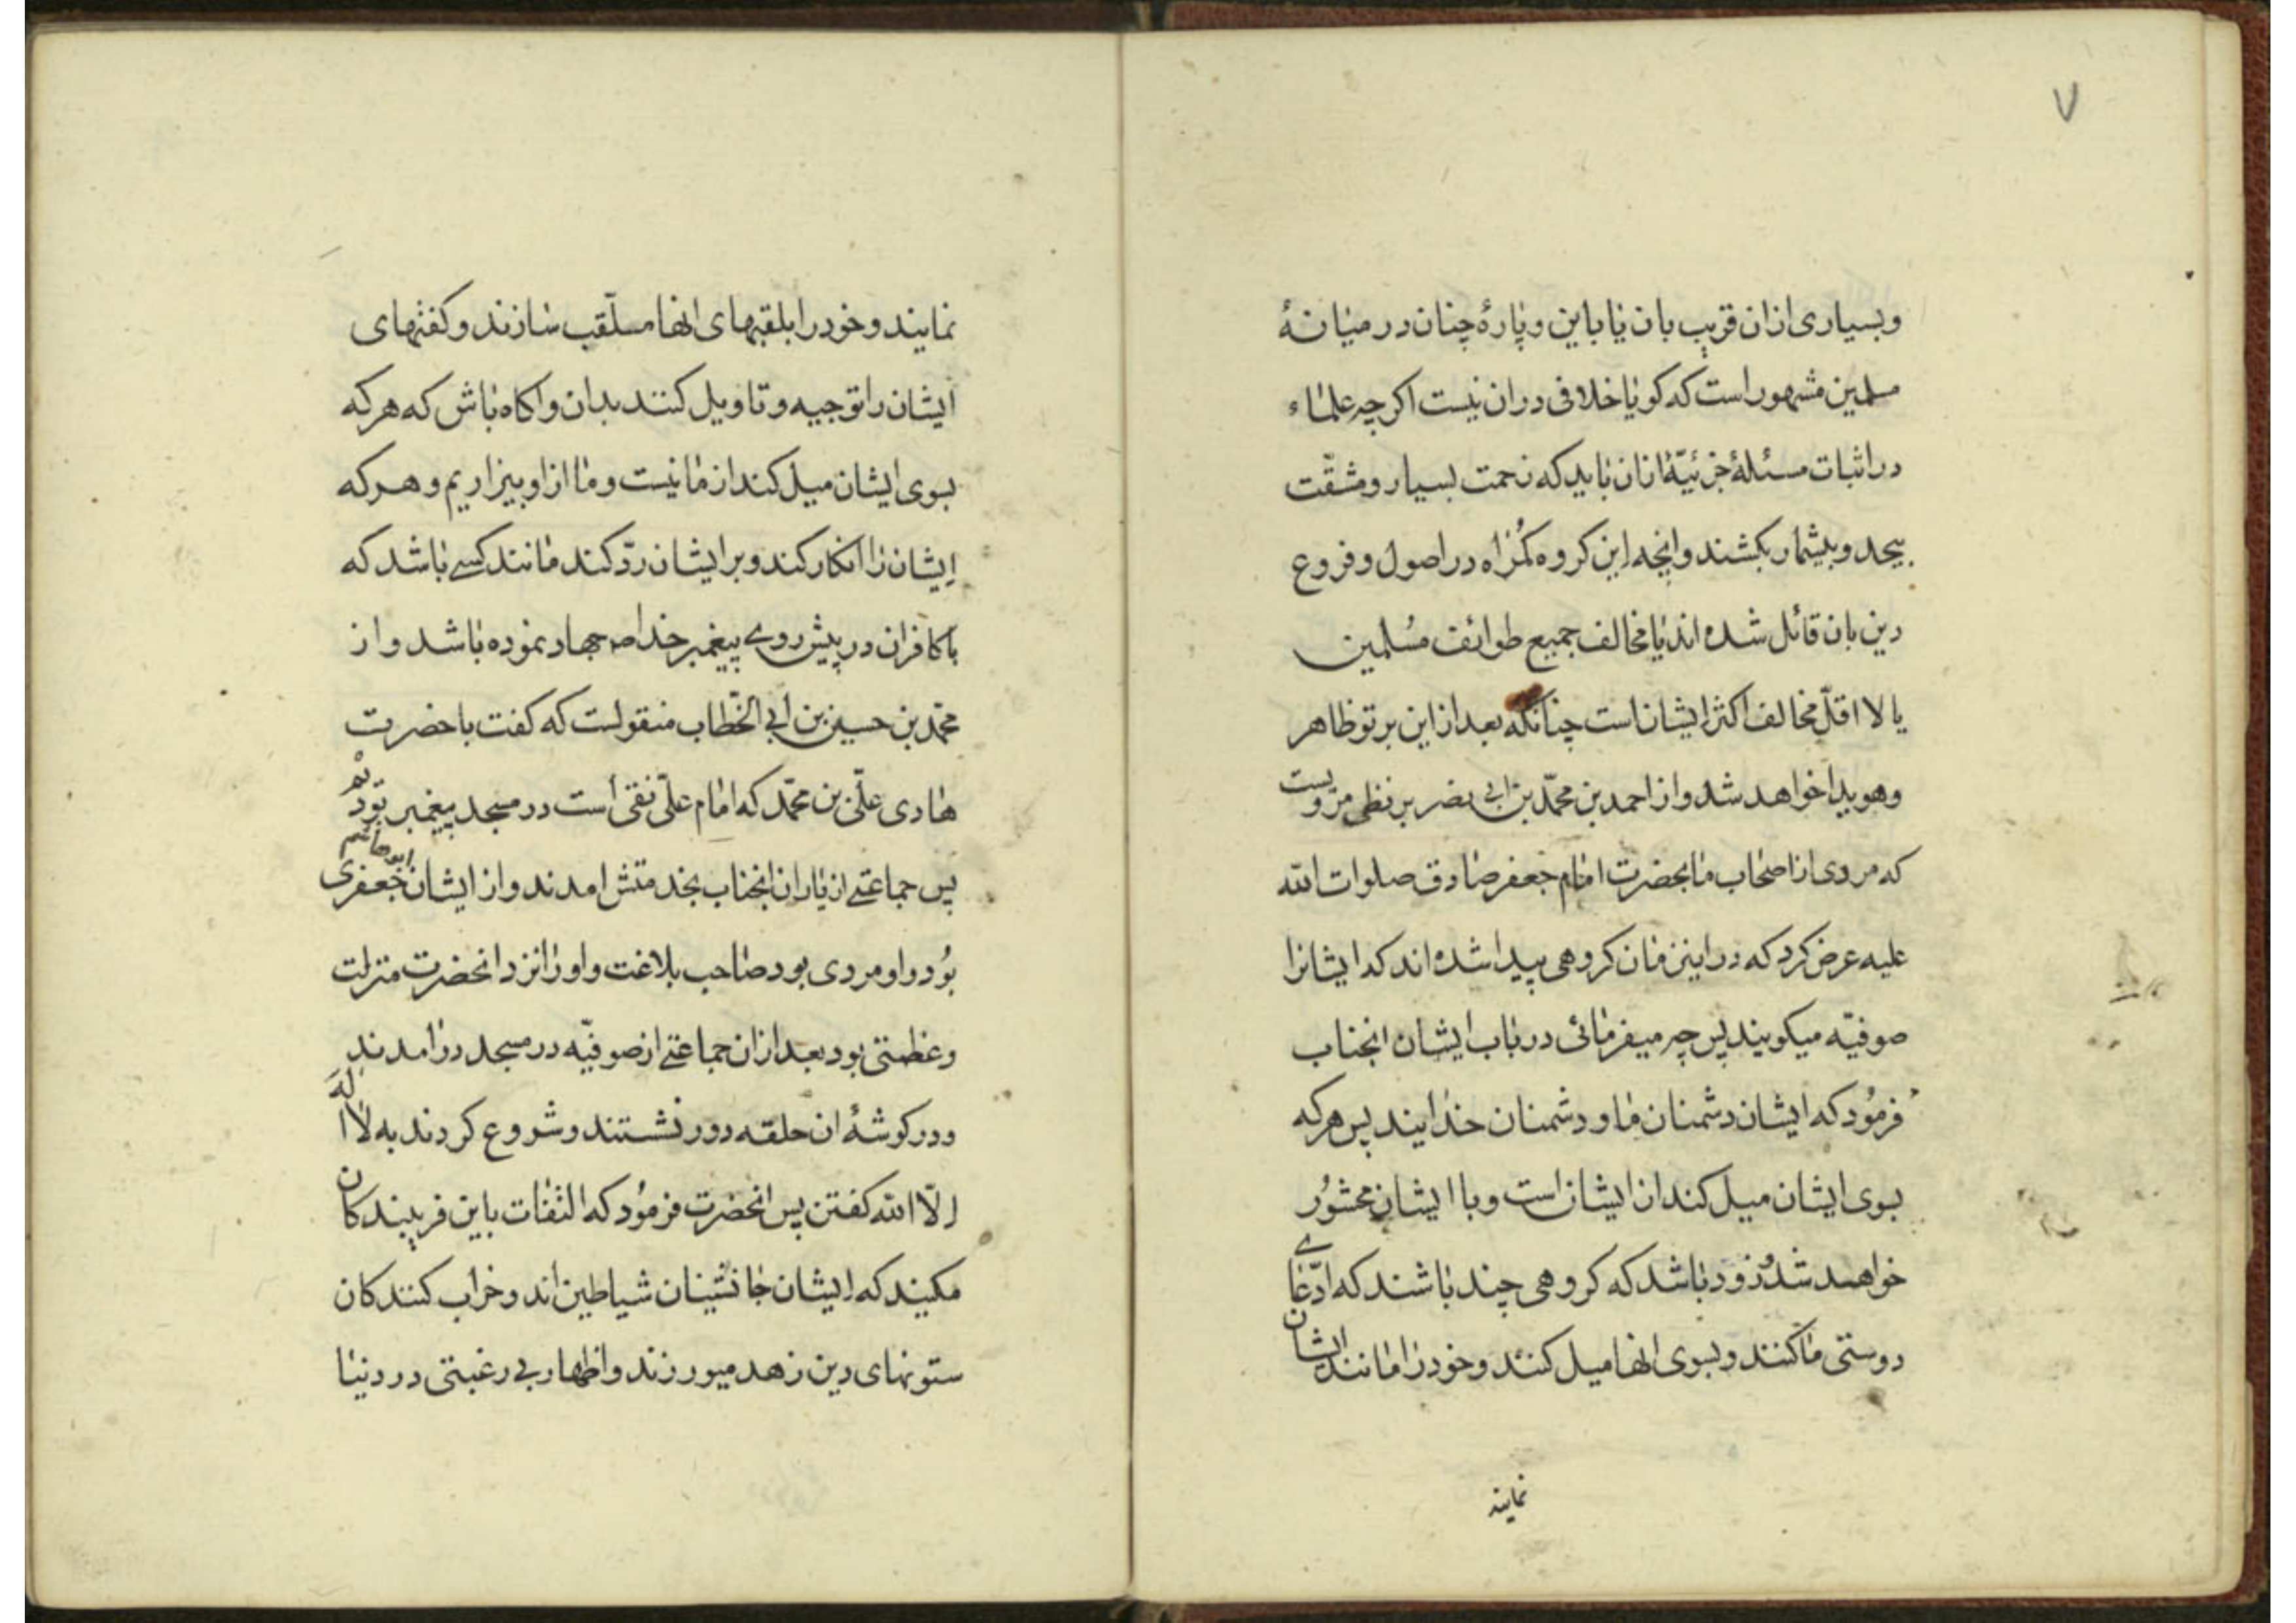 ۷
وبسیاری ازان قریب بان یا باین و پارۀ چنان در میانۀ
مسلمین مشهور است که کویا خلافی دران نیست اکر چه علماء
در اثبات مسئلۀ جزئیّۀ ازان باید که زحمت بسیار و مشقّت
بیحد و بیشمار بکشند وانچه این کروه کمُراه در اصول و فروع
دین بان قائل شده اند یا مخالف جمیع طوائف مُسلمین
یا لا اقلّ مخالف اکثر ایشان است چنانکه بعد از این بر تو ظاهر
وهویدا خواهد شد و از احمد بن محمّد بن ابی نصر بزنطی مرویست
که مردی از اصحاب ما بحضرت امام جعفر صادق صلوات الله
علیه عرض کرد که در اینزمان کروهی پیدا شده اند که ایشانرا
صوفیّه میکویند پس چه میفرمائی در باب ایشان انجناب
فرمُود که ایشان دشمنان ما و دشمنان خدایند پس هرکه
بسوی ایشان میل کند از ایشان است و با ایشان محشوُر
خواهند شد زود باشد که کروهی چند باشند که ادّعای
دوستی ما کنند و بسوی انها میل کنند و خود را مانند ایشان
نمایند
نمایند و خود را بلقبهای انها مسلّقب سازند و کفتهای
ایشان را توجیه و تاویل کنند بدان و اکاه باش که هرکه
بسوی ایشان میل کند از ما نیست و ما از او بیزاریم و هرکه
ایشان را انکار کند و بر ایشان ردّ کند مانند کسے باشد که
با کافران در پیش روے پیغمبر خدا ص جهاد نموده باشد و از
محمّد بن حسین بن ابی الخطّاب منقولست که کفت با حضرت
هادی علّی بن محمّد که امام علّی نقی است در مسجد پیغمبر بودم
پس جماعتے از یاران انجناب بخدمتش امدند و از ایشان ابو هاشم جعفری
بوُد و او مردی بود صاحب بلاغت و او را نزد انحضرت منزلت
وعظمتی بود بعد ازان جماعتے از صوفیّه در مسجد در امدند
و در کوشۀ ان حلقه دور نشستند و شروع کردند به لا اله
الّا الله کفتن پس انحضرت فرموُد که التفات باین فریبندکان
مکیند که ایشان جانشینان شیاطین اند و خراب کنندکان
ستونهای دین زهد میورزند و اظهار بی رغبتی در دنیا